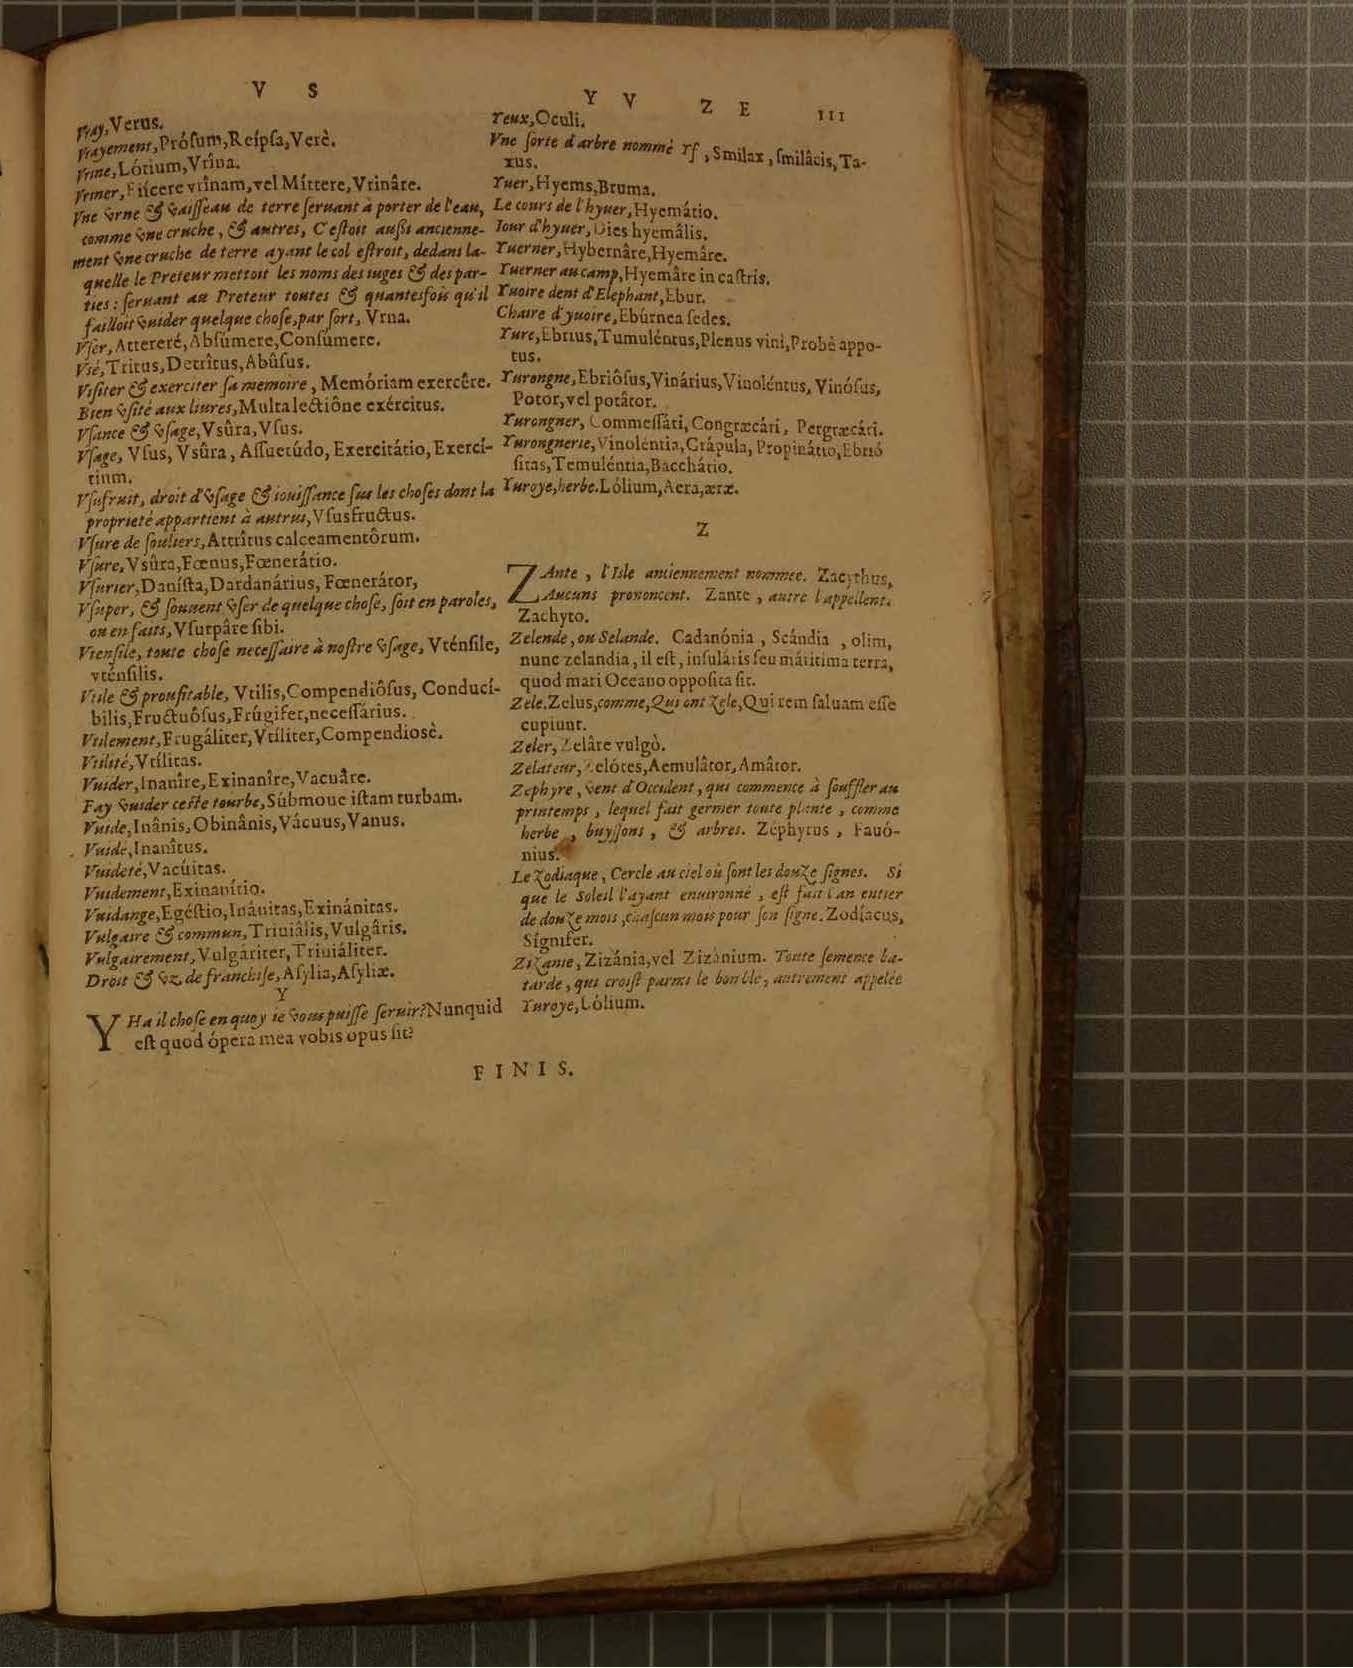 V S
Vray, Verus.
Vrayement, Prósum, Reípsa, Verè.
Vrine, Lótium, Vrîna.
Vriner, Eiícere vrînam, vel Míttere, Vrinâre.
Vne vrne & vaiſſeau de terre ſeruant à porter de l'eau,
comme vne cruche, & autres, C'eſtoit auſsi ancienne-
ment vne cruche de terre ayant le col eſtroit, dedans la-
quelle le Preteur mettoit les noms des iuges & des par-
ties: ſeruant au Preteur toutes & quantesfois qu'il
failloit vuider quelque choſe, par ſort, Vrna.
Vſer, Attereré, Abſúmere, Conſúmere.
Vſé, Tritus, Detrîtus, Abûſus.
Viſiter & exerciter ſa memoire, Memóriam exercêre.
Bien vſité aux liures, Multa lectiône exércitus.
Vſance & vſage, Vsûra, Vſus.
Vſage, Vſus, Vsûra, Aſſuetúdo, Exercitátio, Exercí-
tium.
Vſufruit, droit d'vſage & iouiſſance ſus les choſes dont la
proprieté appartient à autrui, Vſusfructus.
Vſure de ſouliers, Attrîtus calceamentôrum.
Vſure, Vsûra, Fœnus, Fœnerátio.
Vſurier, Daníſta, Dardanárius, Fœnerátor,
Vſuper, & ſouuent vſer de quelque choſe, ſoit en paroles,
ou en faits, Vſurpâre ſibi.
Vtenſile, toute choſe neceſſaire à noſtre vſage, Vténſile,
vténſilis.
Vtile & proufitable, Vtilis, Compendiôſus, Conducí-
bilis, Fructuôſus, Frúgifer, neceſſárius.
Vtilement, Frugáliter, Vtíliter, Compendiosè.
Vtilité, Vtílitas.
Vuider, Inanîre, Exinanîre, Vacuâre.
Fay vuider ceſte tourbe, Súbmoue iſtam turbam.
Vuide, Inânis, Obinânis, Vácuus, Vanus.
Vuide, Inanîtus.
Vuideté, Vacúitas.
Vuidement, Exinanítio.
Vuidange, Egéſtio, Inánitas, Exinánitas.
Vulgaire & commun, Triuiâlis, Vulgâris.
Vulgairement, Vulgáriter, Triuiáliter.
Droit & vz de franchiſe, Aſylia, Aſyliæ.
Y
Y Ha il choſe en quoy ie vous puiſſe ſeruir? Nunquid
eſt quod ópera mea vobis opus ſit?
Y V Z E III
Yeux, Oculi.
Vne ſorte d'arbre nommé Yf, Smilax, ſmilâcis, Ta-
xus.
Yuer, Hyems, Bruma.
Le cours de l'hyuer, Hyemátio.
Iour d'hyuer, Dies hyemâlis.
Yuerner, Hybernâre, Hyemâre.
Yuerner au camp, Hyemâre in caſtris.
Yuoire dent d'Elephant, Ebur.
Chaire d'yuoire, Ebúrnea ſedes.
Yure, Ebrius, Tumuléntus, Plenus vini, Probè appo-
tus.
Yurongne, Ebriôſus, Vinárius, Vinoléntus, Vinóſus,
Potor, vel potâtor.
Yurongner, Commeſſári, Congræcári, Pergræcári.
Yurongnerie, Vinoléntia, Crápula, Propinátio, Ebrió
ſitas, Temuléntia, Bacchátio.
Yuroye, herbe. Lólium, Aera, æræ.
Z
ZAnte, l'Iſle anciennement nommee. Zacythus,
Aucuns prononcent. Zante, autre l'appellent.
Zachyto.
Zelende, ou Selande. Cadanónia, Scándia, olim,
nunc zelandia, il eſt, inſuláris ſeu máritima terra,
quod mari Oceano oppoſita ſit.
Zele. Zelus, comme, Qui ont Zele, Qui rem ſaluam eſſe
cupiunt.
Zeler, Zelâre vulgò.
Zelateur, Zelótes, Aemulâtor, Amâtor.
Zephyre, vent d'Occident, qui commence à ſouffler au
printemps, lequel fait germer toute plante, comme
herbe, buyſſons, & arbres. Zéphyrus, Fauó-
nius.
Le Zodiaque, Cercle au ciel où ſont les douZe ſignes. Si
que le Soleil l'ayant enuironné, eſt fait l'an entier
de douZe mois, chaſcun mois pour ſon ſigne. Zodíacus,
Sígnifer.
ZiZanie, Zizánia, vel Zizánium. Toute ſemence ba-
tarde, qui croiſt parmi le bon blé, autrement appelée
Yuroye, Lólium.
FINIS.